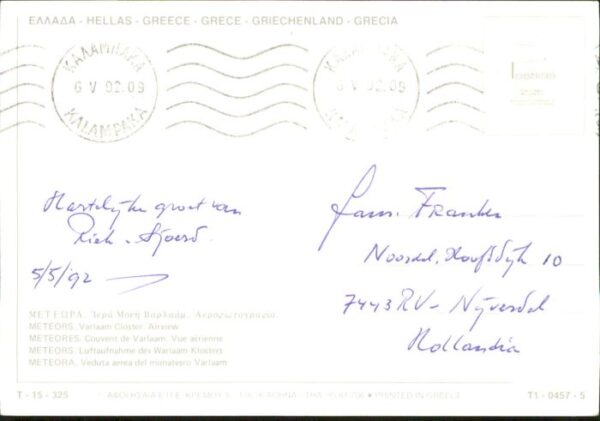 ΕΛΛΑΔΑ - HELLAS - GREECE - GRECE - GRIECHENLAND - GRECIA
ΚΑΛΑΜΠΑΚΑ
6 V 92.09
KALAMPAKA
ΚΑΛΑΜΠΑΚΑ
6 V 92.09
KALAMPAKA
Hartelijke groet van
Riek - Sjoerd.
5/5/92
Fam. Franken
Noordel. Hoofddijk 10
7443 RV - Nijverdal
Hollandia
ΜΕΤΕΩΡΑ. Ἱερά Μονή Βαρλαάμ. Ἀεροφωτογραφία.
METEORS. Varlaam Closter. Airview
METEORES. Couvent de Varlaam. Vue aérienne
METEORS. Luftaufnahme des Warlaam Klosters
METEORA. Veduta aerea del monatesro Varlaam
T - 15 - 325
PRINTED IN GREECE
T1 - 0457 - 5